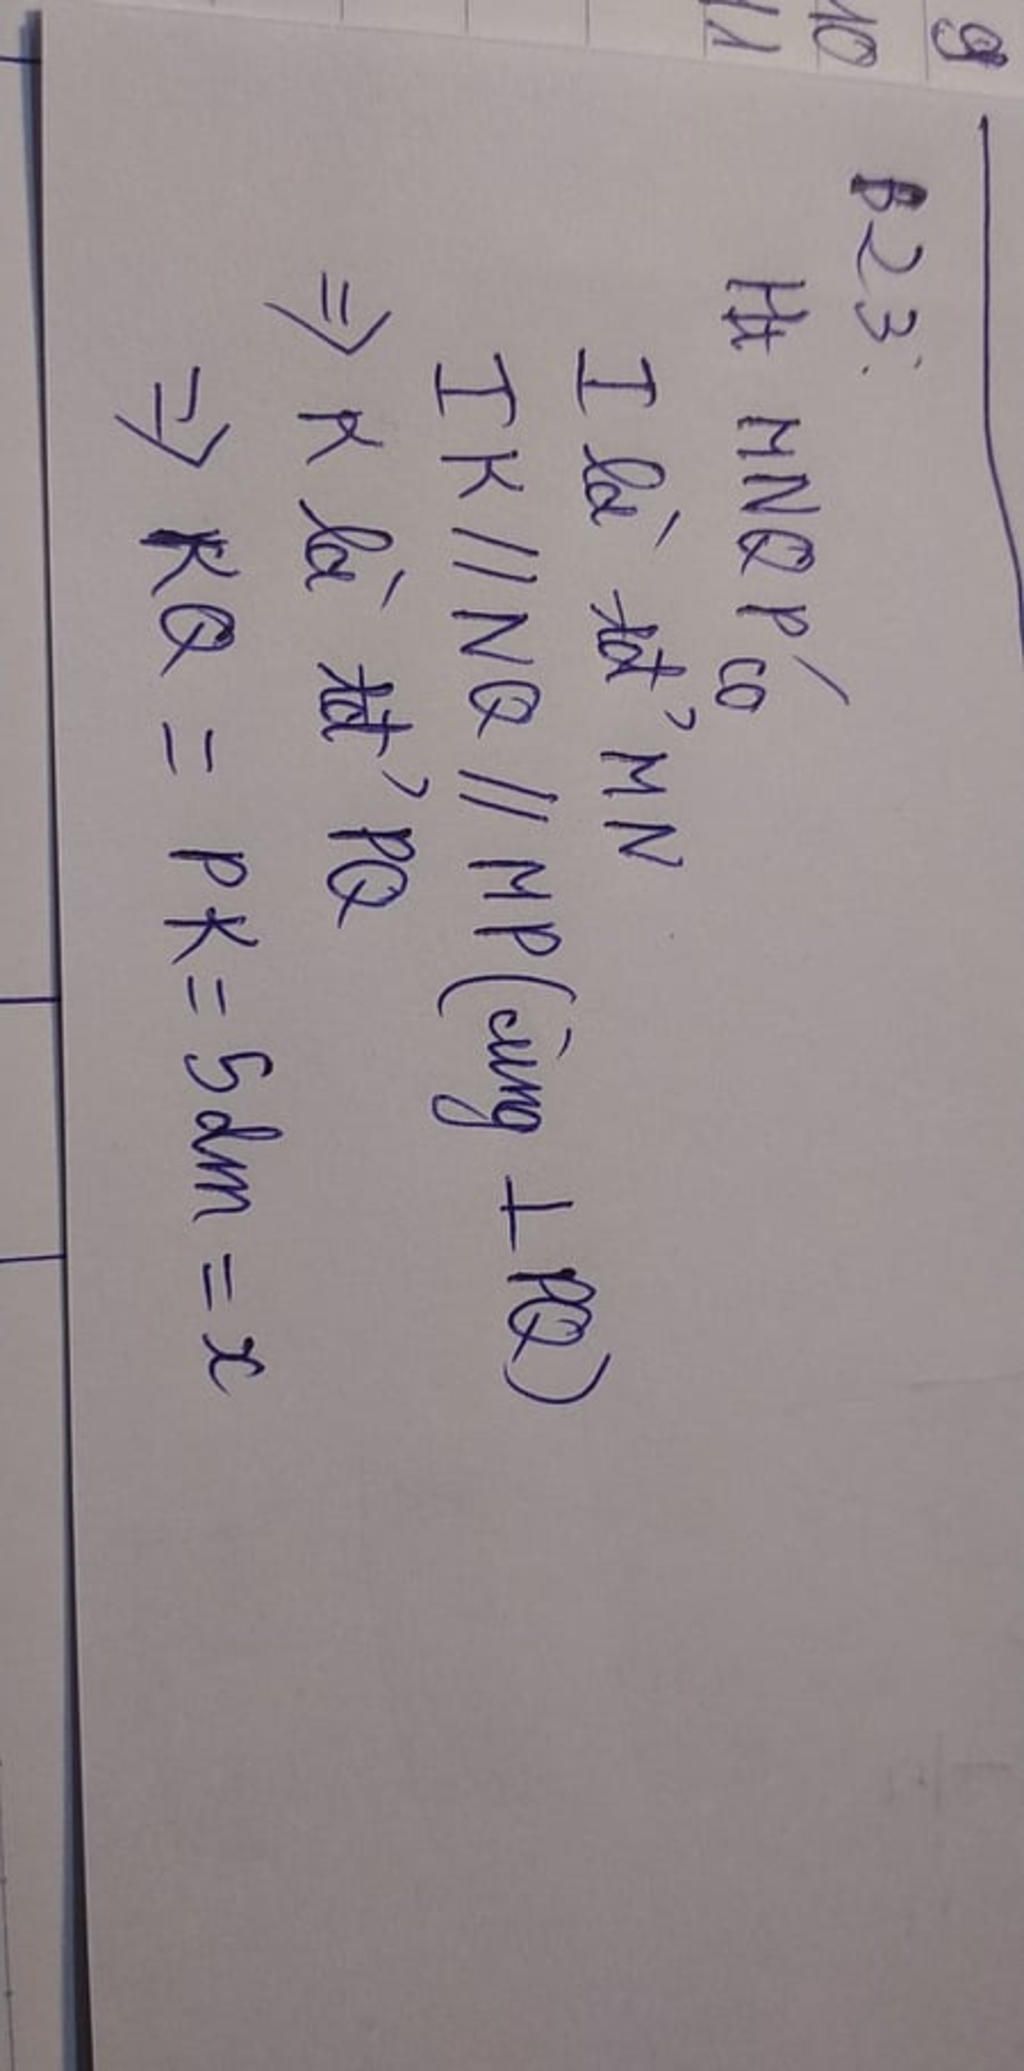 9
10
11
B23:
Ht MNQP có
I là tđ' MN
IK // NQ // MP (cùng ⊥ PQ)
=> K là tđ' PQ
=> KQ = PK = 5dm = x